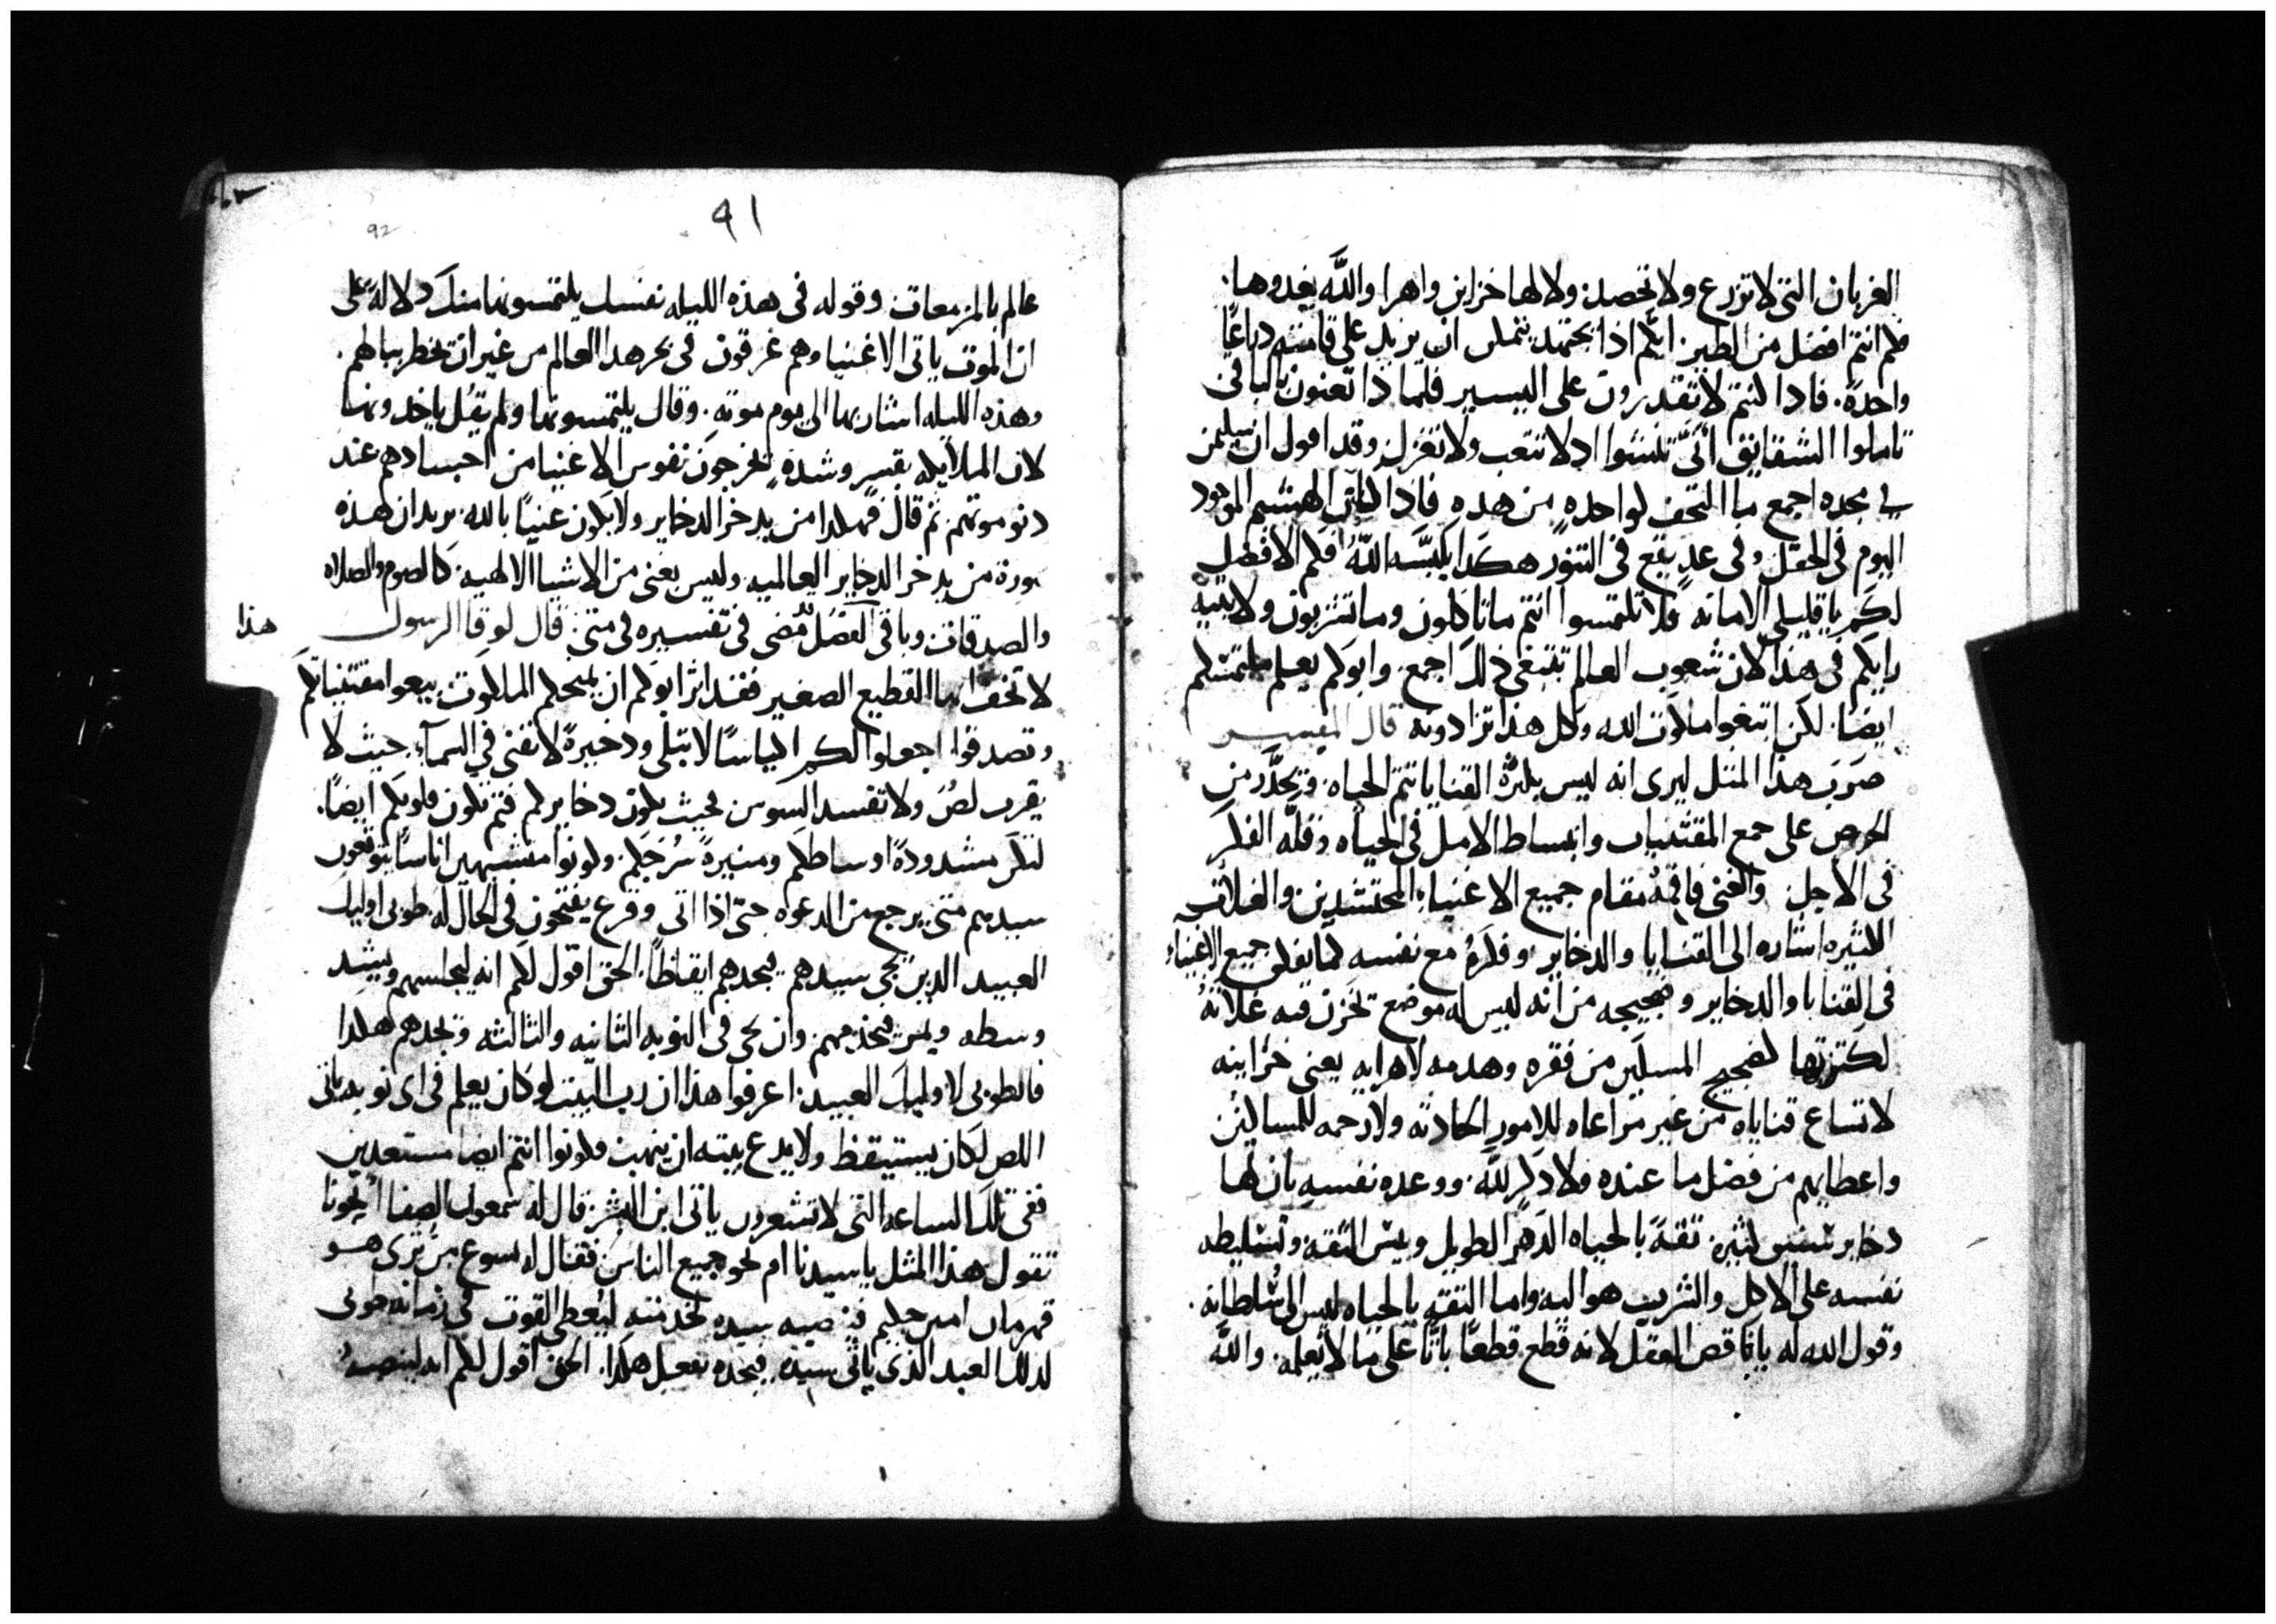 الغربان التى لا تزرع ولا تحصد ولا لها خزاين واهرا والله يغدوها.
فلم انتم افضل من الطير. ايكم اذا يجتهد يتمكن ان يزيد على قامته دراعًا
واحدة. فادا كنتم لا تقدرون على اليسير فلماذا تعنون بالباقى
تاملوا الشقايق انَّى تنشوا اد لا تتعب ولا تغزل وقد اقول ان سليمن
فى مجده اجمع ما التحف لواحده من هده فاذا كان الهشيم الموجود
اليوم فى الحقل وفى غدٍ يقع فى التنور هكدا يلبسه اللهُ افلم الافضل
لكم يا قليلى الامانه فلا تلتمسوا انتم ما تاكلون وما تشربون ولا يتيه
رايكم فى هذا لان شعوب العالم تبتغى ذلك اجمع. وابوكم يعلم ملتمسكم
ايضا. لكن ابتغوا ملكوت الله وكل هذا تزادونه قال المفسر
ضرب هذا المثل ليرى انه ليس بكثرة القنايا تتم الحياه. ويحذَّر من
الحرص على جمع المقتنيات وانبساط الامل فى الحياه وقله الفكر
فى الاجل والغنى فاقمهُ مقام جميع الاغنياء المحتشدين والغلات
الكثيره اشاره الى القنايا والدخاير وفكرهُ مع نفسه كما يفكر جميع الاغنياء
فى القنايا والدخاير وضجيجه من انه ليس له موضع تخزن فيه غلاتهُ
لكثرتها كضجيج المسكين من فقره وهدمه لاهرايه يعنى خزاينه
لاتساع قناياه من غير مراعاه للامور الحادثه ولا رحمه للمساكين
واعطايهم من فضل ما عنده ولا ذكرٍ لله. ووعده نفسه بان لها
دخاير لسنين كثيره. ثقةً بالحياه الدهر الطويل وبئس الثقه وتسليطه
نفسه على الاكل والشرب هو اليه واما الثقه بالحياه ليس الى سُلطانه.
وقول الله له يا ناقص العقل لانه قطع قطعًا باتًّا على ما لا يعلمه. والله
٩١
92
عالم بالمزمعات وقوله فى هذه الليله نفسك يلتمسونها منك دلالةً على
ان الموت ياتى الاغنيا وهم غرقون فى بحر هدا العالم من غير ان يخطر ببالهم.
وهذه الليله اشار بها الى يوم موته. وقال يلتمسونها ولم يقُل ياخدونها
لان الملايكه بقسرٍ وشدةٍ تخرجون نفوس الاغنيا من اجسادهم عند
دنو موتهم ثم قال فهكدا من يدخر الدخاير ولا يكون غنيًا بالله. يريد ان هذه
صورة من يدخر الدخاير العالميه. وليس يعنى من الاشيا الالهيه. كالصوم والصلاه
والصدقات وباقى الفصل مُضى فى تفسيره فى متى. قال لوقا الرسول هذا
لا تخف ايها القطيع الصغير فقد اثر ابوكم ان يمنحكم الملكوت بيعوا مقتنياتكم
وتصدقوا اجعلوا لكم اكياسًا لا تبلى ودخيرةً لا تفنى فى السمآء حيث لا
يقرب لصٌ ولا تفسد السوس فحيث يكون دخايركم فثم تكون قلوبكم ايضًا.
لتكن مشدودةً اوساطكم ومنيرةً سُرجكم. وكونوا متشبهين اناسًا يتوقعون
سيدهم متى يرجع من الدعوه حتى اذا اتى وقرع يفتحون فى الحال له. طوبى اوليك
العبيد الدين يجى سيدهم فيجدهم ايقاظًا. الحق اقول لكم انه ليجلسهم ويشد
وسطه ويمر فيخدمهم. وان يجى فى النوبه الثانيه والثالثه وتجدهم هكدا
فالطوبى لاوليك العبيد. اعرفوا هذا ان رب البيت لو كان يعلم فى اى نوبه ياتى
اللص لكان يستيقظ ولا يدع بيته ان ينهب فكونوا انتم ايضا مستعدين
ففى تلك الساعه التى لا تشعرون ياتى ابن البشر. قال له شمعون الصفا أنحونا
تقول هذا المثل يا سيدنا ام نحو جميع الناس فقال له يسوع من ترى هو
قهرمان امين حكيم فينصبه سيده لخدمته ليُعطى القوت فى زمانه طوبى
لدلك العبد الذى ياتى سيده فيجده يفعل هكدا. الحق اقول لكم انه لينصبهُ